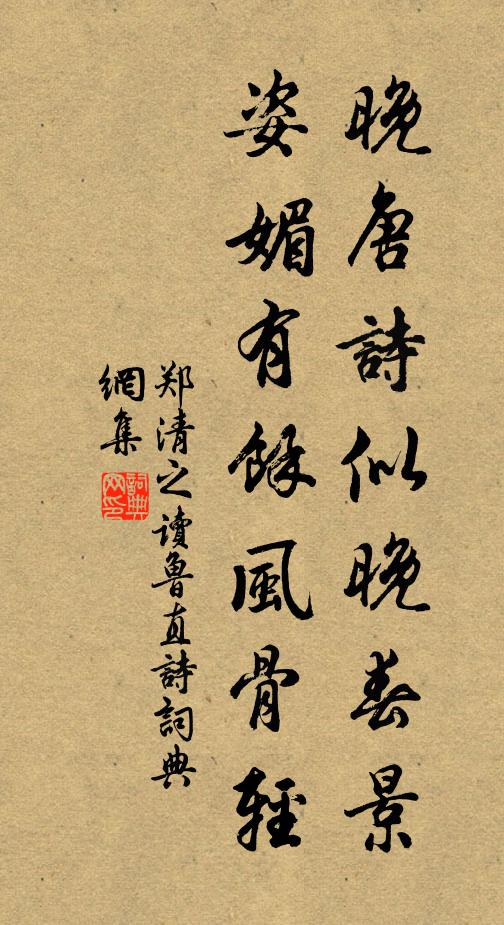 晚唐詩似晚春景
姿媚有餘風骨輕
郑清之讀魯直詩詞典
網集
詞典
网印